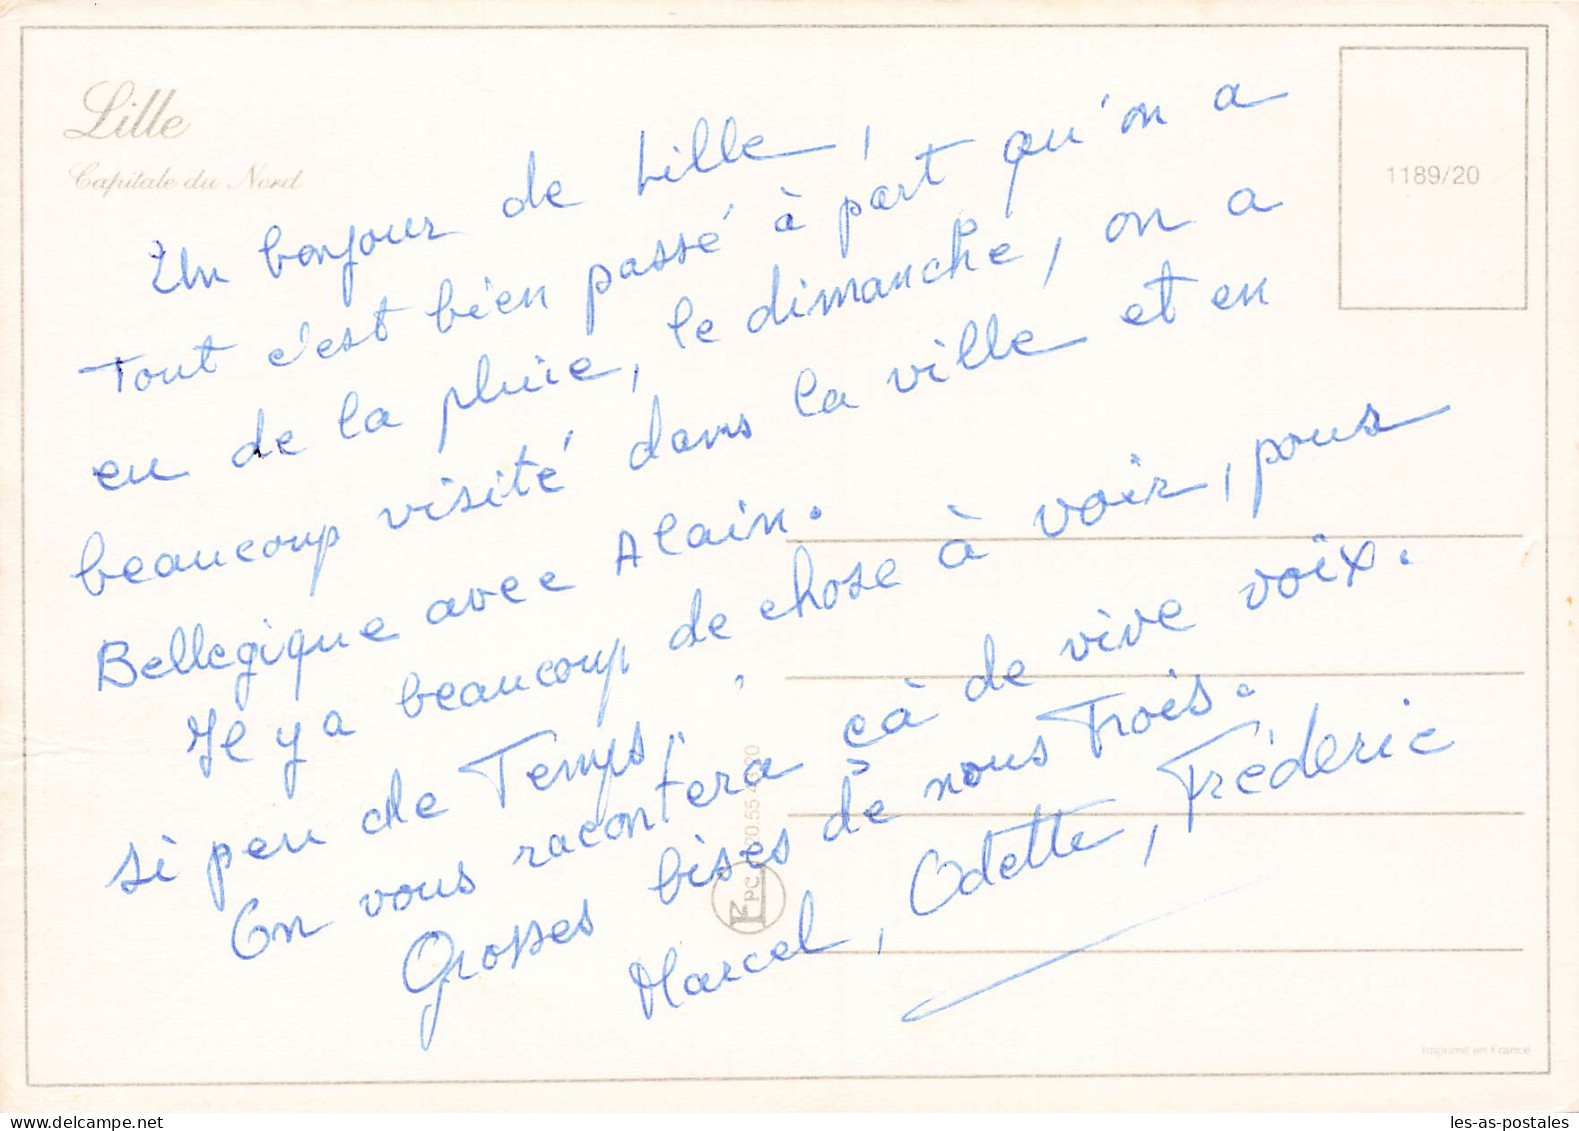 Lille
Capitale du Nord
1189/20
Un bonjour de Lille,
Tout c'est bien passé à part qu'on a
eu de la pluie, le dimanche, on a
beaucoup visité dans la ville et en
Bellegique avec Alain.
Il y a beaucoup de chose à voir, pour
si peu de Temps.
On vous racontera çà de vive voix.
Grosses bises de nous Trois.
Marcel, Odette, Fréderic
PC
Imprimé en France
les-as-postales